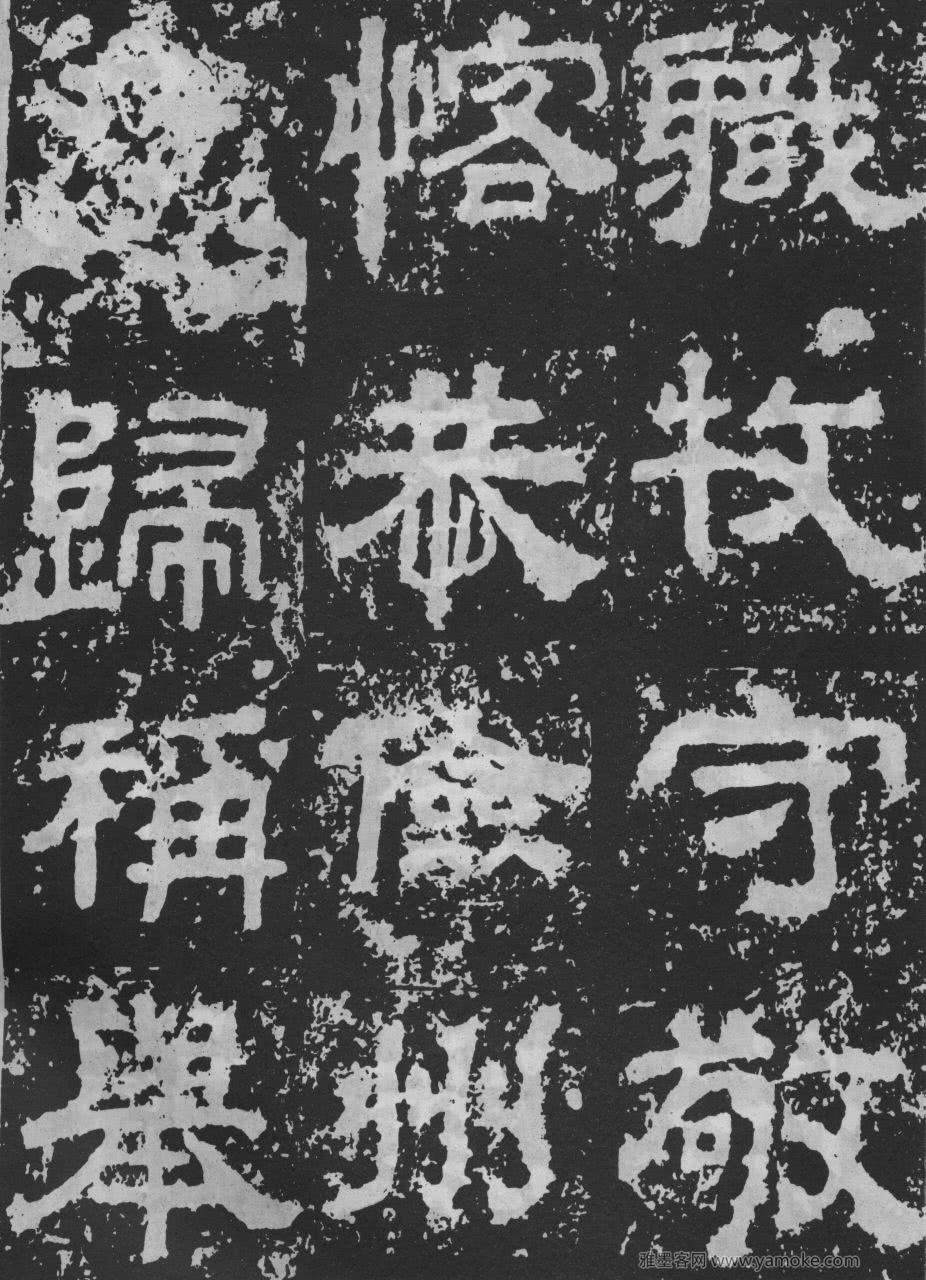 職牧守敬
恪恭儉州
歸稱舉
雅墨客网 www.yamoke.com